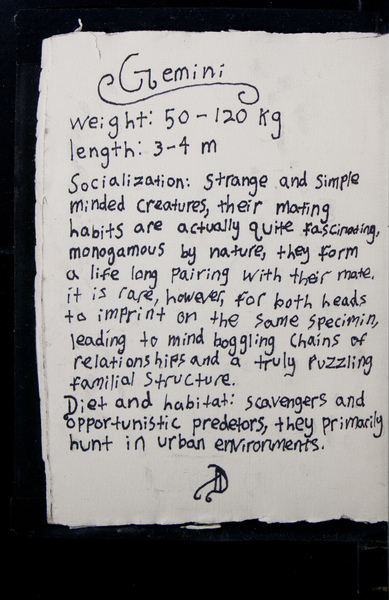 Gemini
weight: 50-120 kg
length: 3-4 m
Socialization: strange and simple
minded creatures, their mating
habits are actually quite fascinating,
monogamous by nature, they form
a life long pairing with their mate.
it is rare, however, for both heads
to imprint on the same specimin,
leading to mind boggling chains of
relationships and a truly puzzling
familial structure.
Diet and habitat: scavengers and
opportunistic predetors, they primarily
hunt in urban environments.